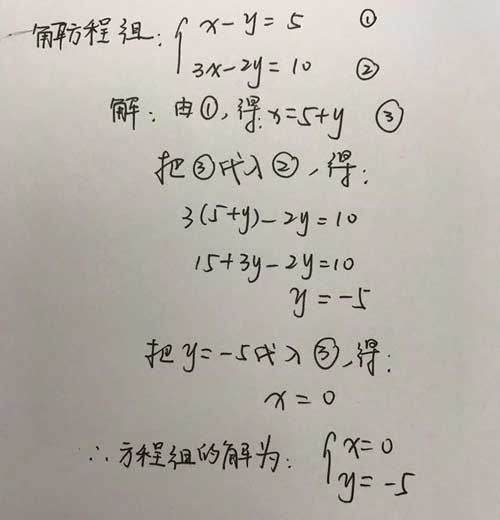 解方程组: { x-y=5 ①
3x-2y=10 ②
解: 由①,得: x=5+y ③
把③代入②,得:
3(5+y)-2y=10
15+3y-2y=10
y=-5
把y=-5代入③,得:
x=0
∴方程组的解为: { x=0
y=-5